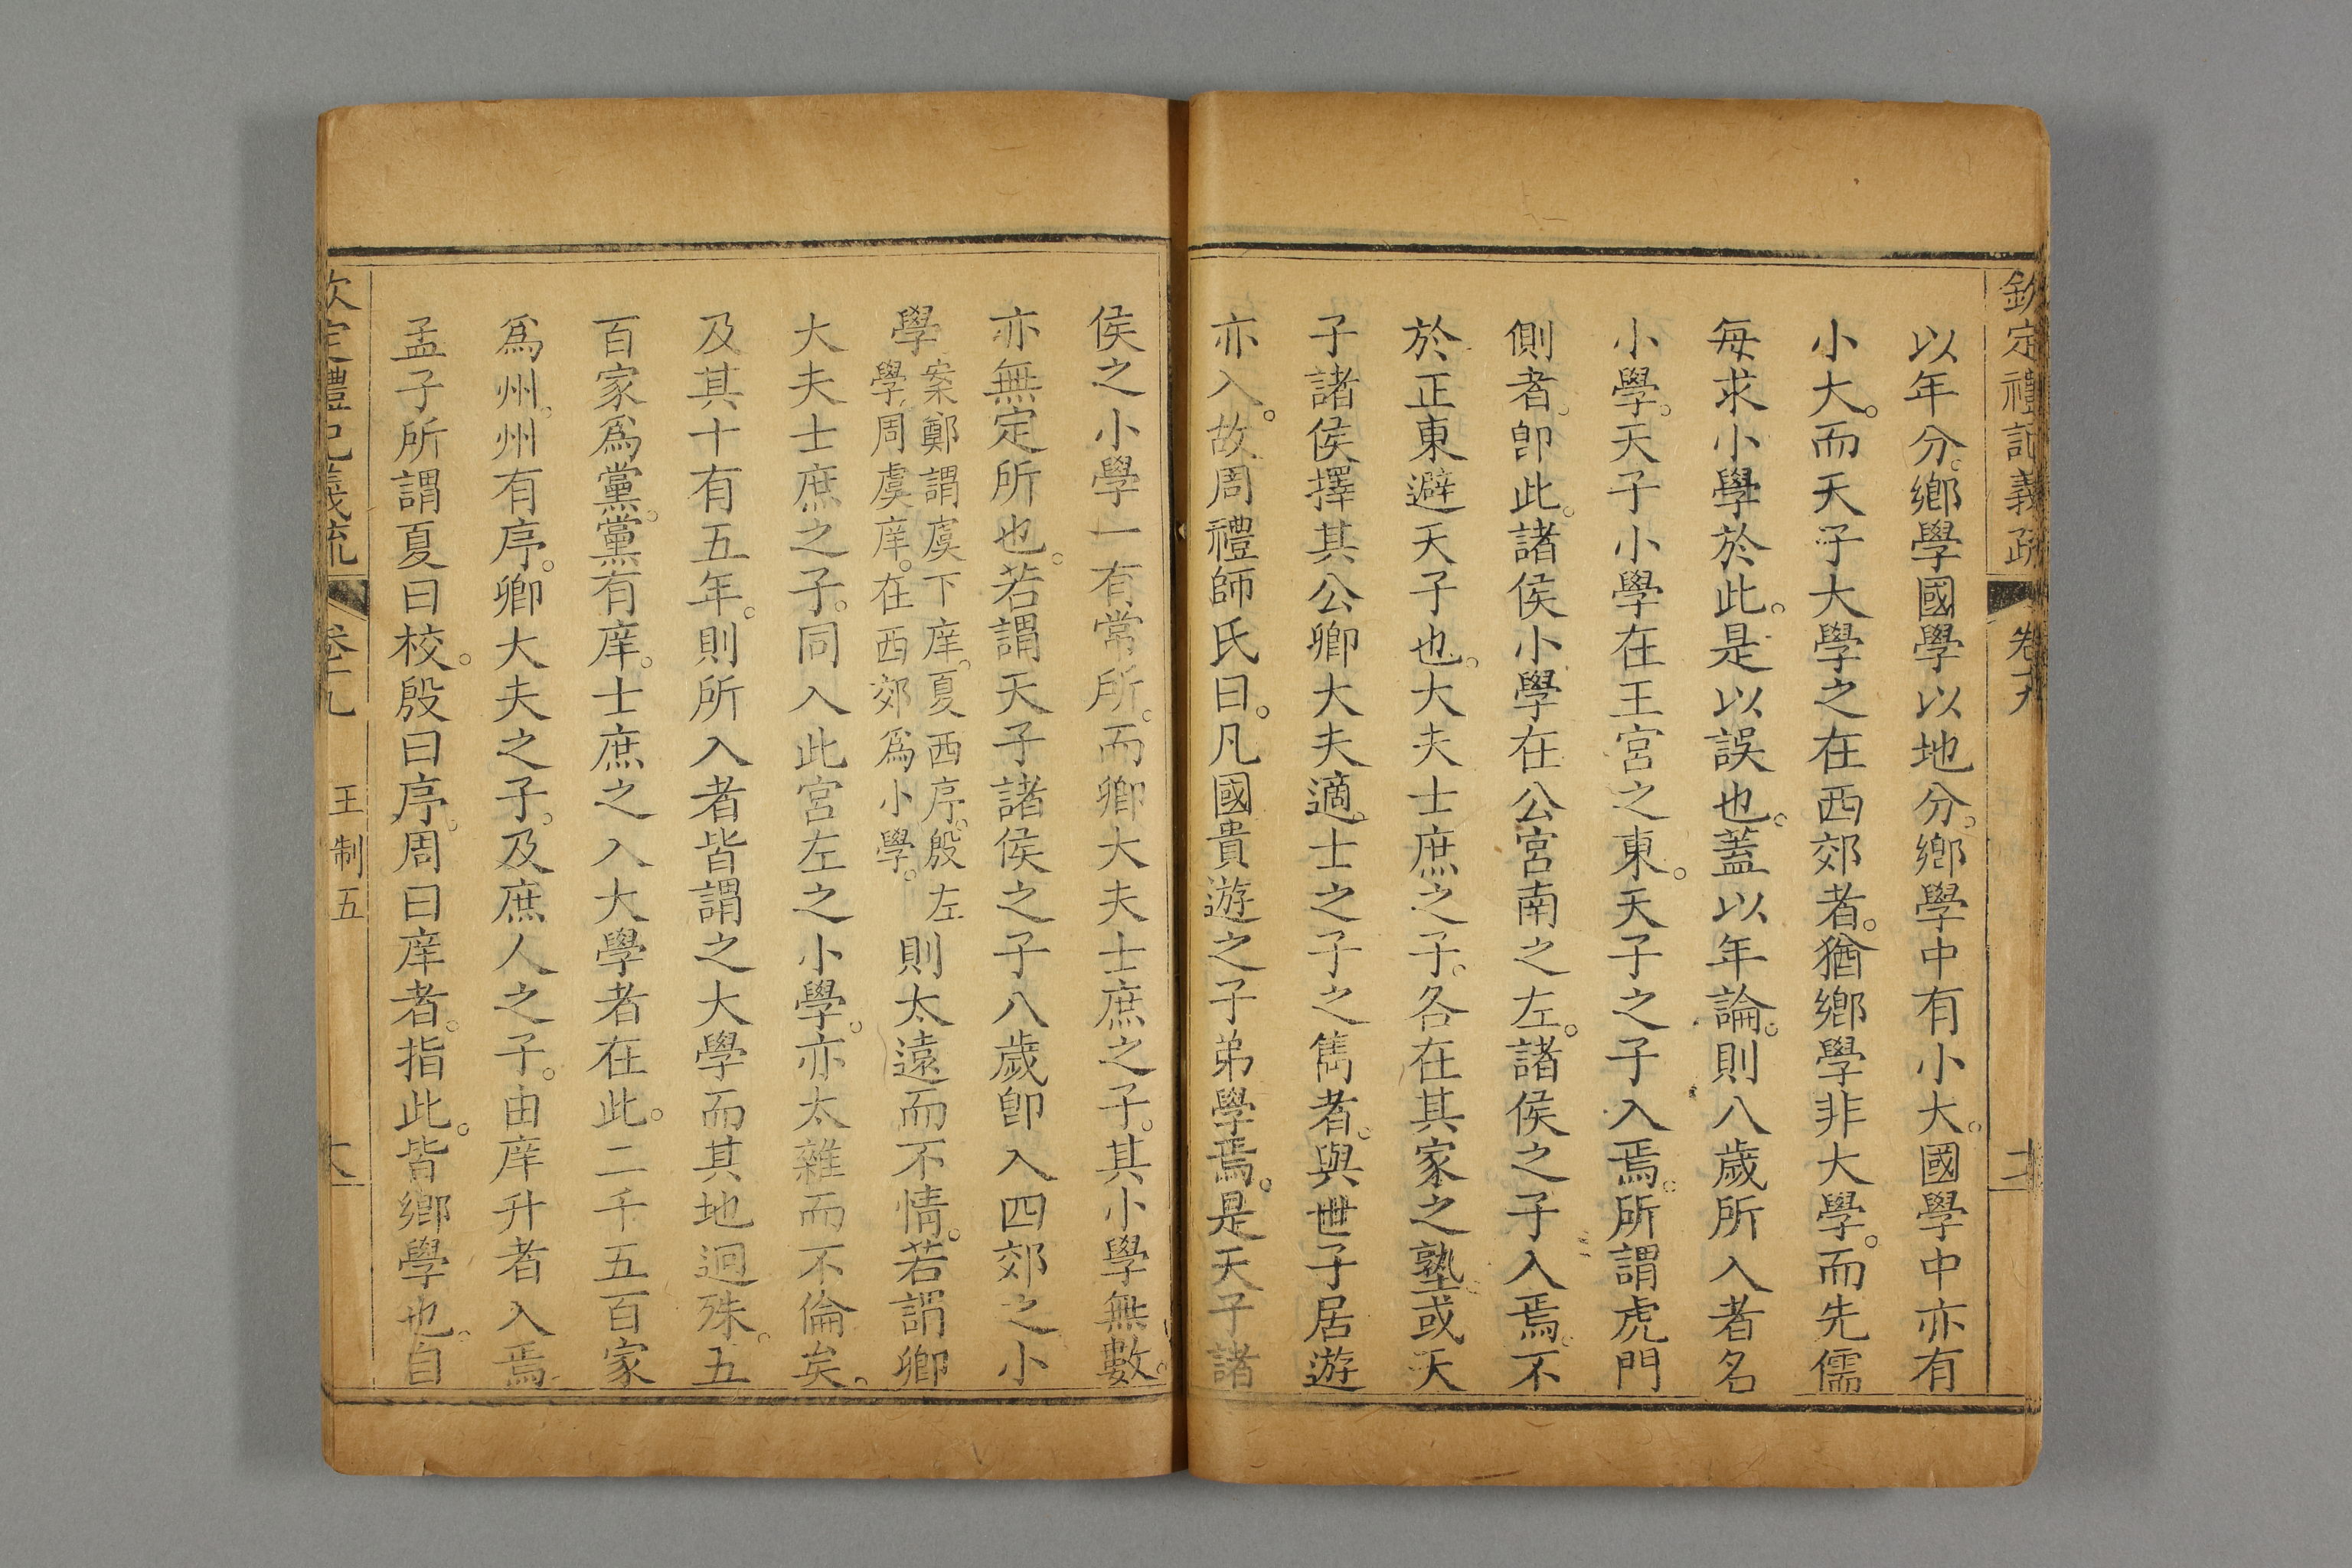 欽定禮記義疏 卷十九
以年分。鄉學國學以地分。鄉學中有小大。國學中亦有
小大。而天子大學之在西郊者。猶鄉學非大學。而先儒
每求小學於此。是以誤也。蓋以年論。則八歲所入者名
小學。天子小學在王宮之東。天子之子入焉。所謂虎門
側者。卽此。諸侯小學在公宮南之左。諸侯之子入焉。不
於正東避天子也。大夫士庶之子。各在其家之塾或天
子諸侯擇其公卿大夫適。士之子之雋者。與世子居遊
亦入。故周禮師氏曰。凡國貴遊之子弟學焉。是天子諸
侯之小學一有常所。而卿大夫士庶之子。其小學無數。
亦無定所也。若謂天子諸侯之子八歲卽入四郊之小
學
案鄭謂虞下庠。夏西序。殷左
學。周虞庠。在西郊爲小學。
則太遠而不情。若謂卿
大夫士庶之子。同入此宮左之小學。亦太雜而不倫矣。
及其十有五年。則所入者皆謂之大學而其地迥殊。五
百家爲黨。黨有庠。士庶之入大學者在此。二千五百家
爲州。州有序。卿大夫之子。及庶人之子。由庠升者入焉
孟子所謂夏曰校。殷曰序。周曰庠者。指此。皆鄉學也。自
欽定禮記義疏 卷十九 王制五